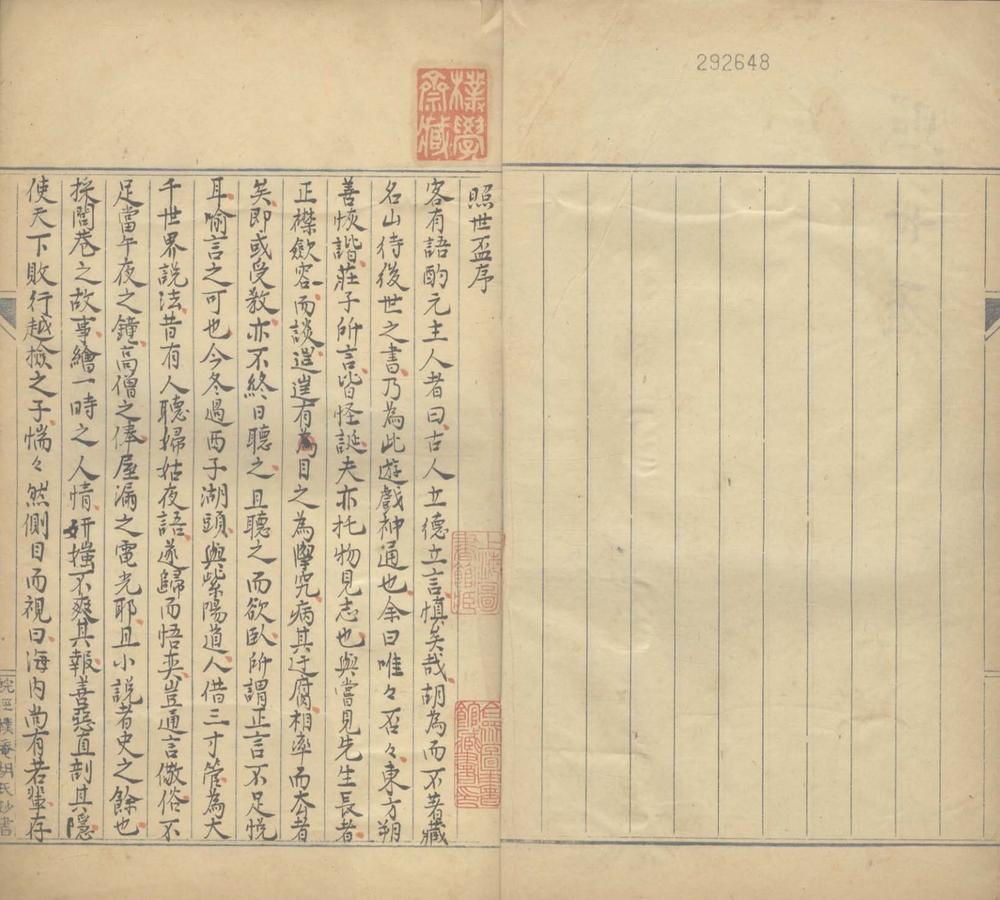 292648
樸學齋藏
照世盃序
客有語酌元主人者曰古人立德立言慎矣哉胡為而不著藏
名山待後世之書乃為此遊戲神通也余曰唯々否々東方朔
善恢諧莊子所言皆怪誕夫亦托物見志也與嘗見先生長者
正襟歛容而談逰逰有為目之為學究病其迂腐相率而夲者
矣即或受教亦不終日聽之且聽之而欲臥所謂正言不足悅
耳喻言之可也今冬過西子湖頭與紫陽道人借三寸管為大
千世界說法昔有人聽婦姑夜語遂歸而悟奕豈通言儆俗不
足當午夜之鐘高僧之俸屋漏之電光耶且小說者史之餘也
採閭巷之故事繪一時之人情妍媸不爽其報善惡直剖其隱
使天下敗行越撿之子惴々然側目而視曰海內尚有若輩存
上海圖書館藏
合眾圖書館藏書印
涇樸菴胡氏鈔書